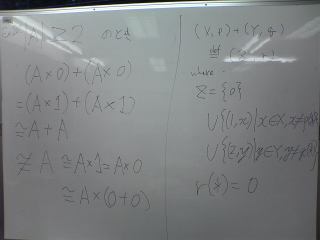 |A| ≥ 2 のとき
(A×0)+(A×0)
=(A×1)+(A×1)
≅A+A
≇A ≅A×1=A×0
≅A×(0+0)
(X,p)+(Y,q)
def
where
Z={0}
∪{(1,x)|x∈X,x≠p
∪{(2,y)|y∈Y,y≠
r(*)=0